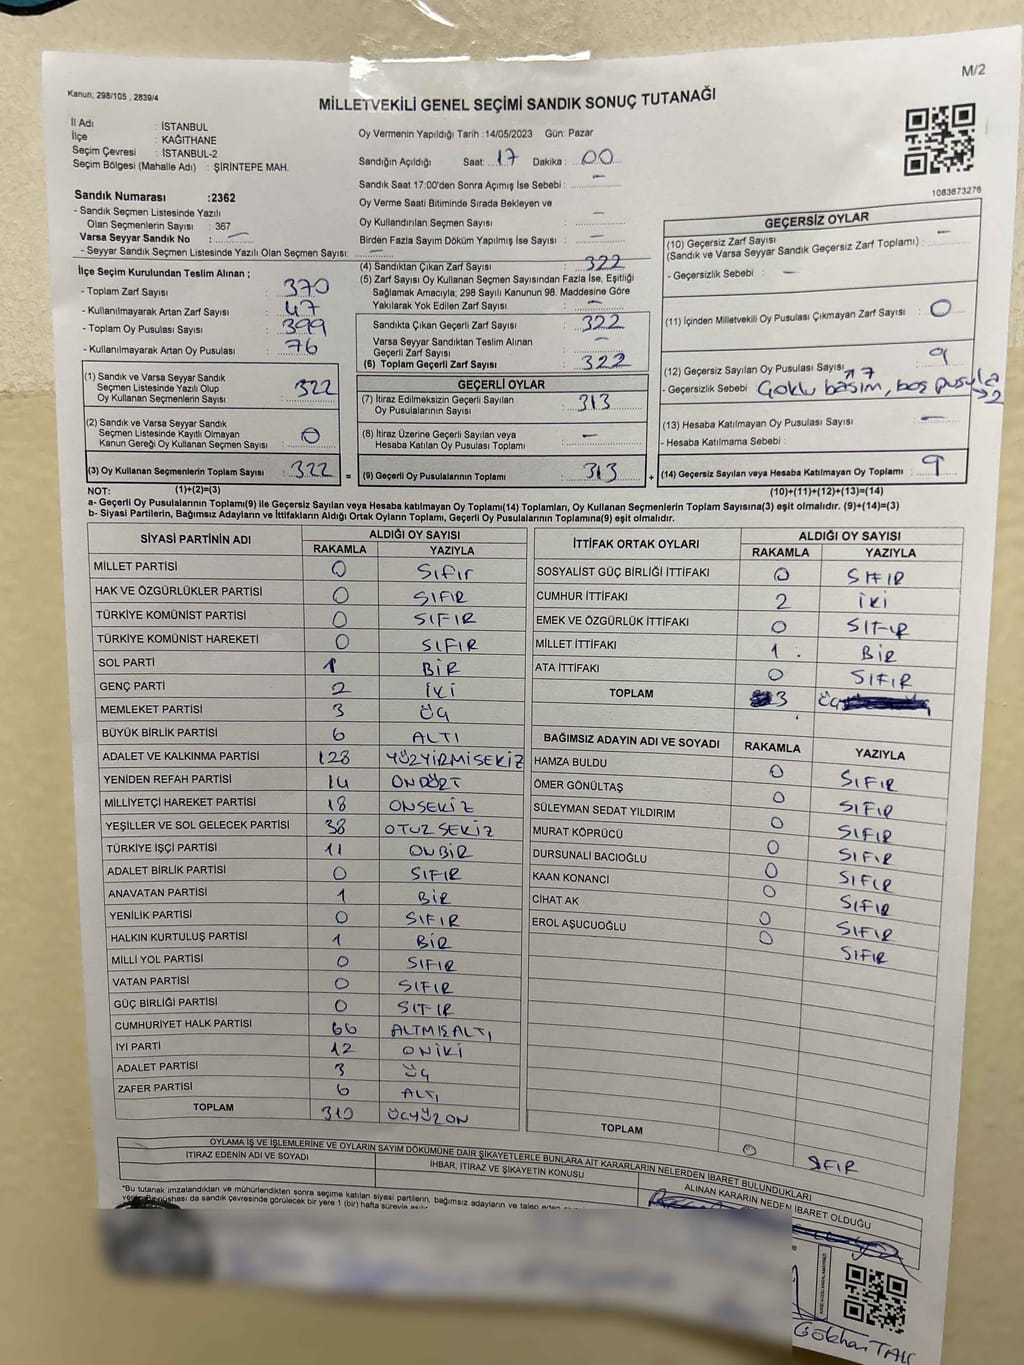 M/2
Kanun; 298/105 , 2839/4
MİLLETVEKİLİ GENEL SEÇİMİ SANDIK SONUÇ TUTANAĞI
İl Adı : İSTANBUL
İlçe : KAĞITHANE
Seçim Çevresi : İSTANBUL-2
Seçim Bölgesi (Mahalle Adı) : ŞİRİNTEPE MAH.
Sandık Numarası :2362
- Sandık Seçmen Listesinde Yazılı
Olan Seçmenlerin Sayısı : 367
Varsa Seyyar Sandık No : —
- Seyyar Sandık Seçmen Listesinde Yazılı Olan Seçmen Sayısı: —
Oy Vermenin Yapıldığı Tarih :14/05/2023 Gün: Pazar
Sandığın Açıldığı Saat: 17 Dakika : 00
Sandık Saat 17:00'den Sonra Açımış İse Sebebi : —
Oy Verme Saati Bitiminde Sırada Bekleyen ve
Oy Kullandırılan Seçmen Sayısı : —
Birden Fazla Sayım Döküm Yapılmış İse Sayısı : —
1083873276
İlçe Seçim Kurulundan Teslim Alınan ;
- Toplam Zarf Sayısı : 370
- Kullanılmayarak Artan Zarf Sayısı : 47
- Toplam Oy Pusulası Sayısı : 399
- Kullanılmayarak Artan Oy Pusulası : 76
(1) Sandık ve Varsa Seyyar Sandık
Seçmen Listesinde Yazılı Olup
Oy Kullanan Seçmenlerin Sayısı : 322
(2) Sandık ve Varsa Seyyar Sandık
Seçmen Listesinde Kayıtlı Olmayan
Kanun Gereği Oy Kullanan Seçmen Sayısı : 0
(3) Oy Kullanan Seçmenlerin Toplam Sayısı : 322
(4) Sandıktan Çıkan Zarf Sayısı : 322
(5) Zarf Sayısı Oy Kullanan Seçmen Sayısından Fazla İse, Eşitliği
Sağlamak Amacıyla; 298 Sayılı Kanunun 98. Maddesine Göre
Yakılarak Yok Edilen Zarf Sayısı : —
Sandıkta Çıkan Geçerli Zarf Sayısı : 322
Varsa Seyyar Sandıktan Teslim Alınan
Geçerli Zarf Sayısı : —
(6) Toplam Geçerli Zarf Sayısı : 322
GEÇERLİ OYLAR
(7) İtiraz Edilmeksizin Geçerli Sayılan
Oy Pusulalarının Sayısı : 313
(8) İtiraz Üzerine Geçerli Sayılan veya
Hesaba Katılan Oy Pusulası Toplamı : —
= (9) Geçerli Oy Pusulalarının Toplamı : 313
GEÇERSİZ OYLAR
(10) Geçersiz Zarf Sayısı
(Sandık ve Varsa Seyyar Sandık Geçersiz Zarf Toplamı) : —
- Geçersizlik Sebebi : —
(11) İçinden Milletvekili Oy Pusulası Çıkmayan Zarf Sayısı : 0
(12) Geçersiz Sayılan Oy Pusulası Sayısı : 9
- Geçersizlik Sebebi : Çoklu basım, boş pusula
7
2
(13) Hesaba Katılmayan Oy Pusulası Sayısı : —
- Hesaba Katılmama Sebebi :
+ (14) Geçersiz Sayılan veya Hesaba Katılmayan Oy Toplamı : 9
NOT: (1)+(2)=(3)
(10)+(11)+(12)+(13)=(14)
a- Geçerli Oy Pusulalarının Toplamı(9) ile Geçersiz Sayılan veya Hesaba katılmayan Oy Toplamı(14) Toplamları, Oy Kullanan Seçmenlerin Toplam Sayısına(3) eşit olmalıdır. (9)+(14)=(3)
b- Siyasi Partilerin, Bağımsız Adayların ve İttifakların Aldığı Ortak Oyların Toplamı, Geçerli Oy Pusulalarının Toplamına(9) eşit olmalıdır.
SİYASİ PARTİNİN ADI ALDIĞI OY SAYISI
RAKAMLA YAZIYLA
MİLLET PARTİSİ 0 Sıfır
HAK VE ÖZGÜRLÜKLER PARTİSİ 0 SIFIR
TÜRKİYE KOMÜNİST PARTİSİ 0 SIFIR
TÜRKİYE KOMÜNİST HAREKETİ 0 SIFIR
SOL PARTİ 1 BİR
GENÇ PARTİ 2 İKİ
MEMLEKET PARTİSİ 3 ÜÇ
BÜYÜK BİRLİK PARTİSİ 6 ALTI
ADALET VE KALKINMA PARTİSİ 128 YÜZYİRMİSEKİZ
YENİDEN REFAH PARTİSİ 14 ONDÖRT
MİLLİYETÇİ HAREKET PARTİSİ 18 ONSEKİZ
YEŞİLLER VE SOL GELECEK PARTİSİ 38 OTUZ SEKİZ
TÜRKİYE İŞÇİ PARTİSİ 11 ONBİR
ADALET BİRLİK PARTİSİ 0 SIFIR
ANAVATAN PARTİSİ 1 BİR
YENİLİK PARTİSİ 0 SIFIR
HALKIN KURTULUŞ PARTİSİ 1 BİR
MİLLİ YOL PARTİSİ 0 SIFIR
VATAN PARTİSİ 0 SIFIR
GÜÇ BİRLİĞİ PARTİSİ 0 SIFIR
CUMHURİYET HALK PARTİSİ 66 ALTMIŞALTI
İYİ PARTİ 12 ONİKİ
ADALET PARTİSİ 3 ÜÇ
ZAFER PARTİSİ 6 ALTI
TOPLAM 310 ÜÇYÜZON
İTTİFAK ORTAK OYLARI ALDIĞI OY SAYISI
RAKAMLA YAZIYLA
SOSYALİST GÜÇ BİRLİĞİ İTTİFAKI 0 SIFIR
CUMHUR İTTİFAKI 2 İKİ
EMEK VE ÖZGÜRLÜK İTTİFAKI 0 SIFIR
MİLLET İTTİFAKI 1 BİR
ATA İTTİFAKI 0 SIFIR
TOPLAM 3 ÜÇ
BAĞIMSIZ ADAYIN ADI VE SOYADI RAKAMLA YAZIYLA
HAMZA BULDU 0 SIFIR
ÖMER GÖNÜLTAŞ 0 SIFIR
SÜLEYMAN SEDAT YILDIRIM 0 SIFIR
MURAT KÖPRÜCÜ 0 SIFIR
DURSUNALİ BACIOĞLU 0 SIFIR
KAAN KONANCI 0 SIFIR
CİHAT AK 0 SIFIR
EROL AŞUCUOĞLU 0 SIFIR
TOPLAM 0 SIFIR
OYLAMA İŞ VE İŞLEMLERİNE VE OYLARIN SAYIM DÖKÜMÜNE DAİR ŞİKAYETLERLE BUNLARA AİT KARARLARIN NELERDEN İBARET BULUNDUKLARI
İTİRAZ EDENİN ADI VE SOYADI
İHBAR, İTİRAZ VE ŞİKAYETİN KONUSU
ALINAN KARARIN NEDEN İBARET OLDUĞU
*Bu tutanak imzalandıktan ve mühürlendikten sonra seçime katılan siyasi partilerin, bağımsız adayların ve talep eden
sandık çevresinde görülecek bir yere 1 (bir) hafta süreyle asılır.
Gökhan